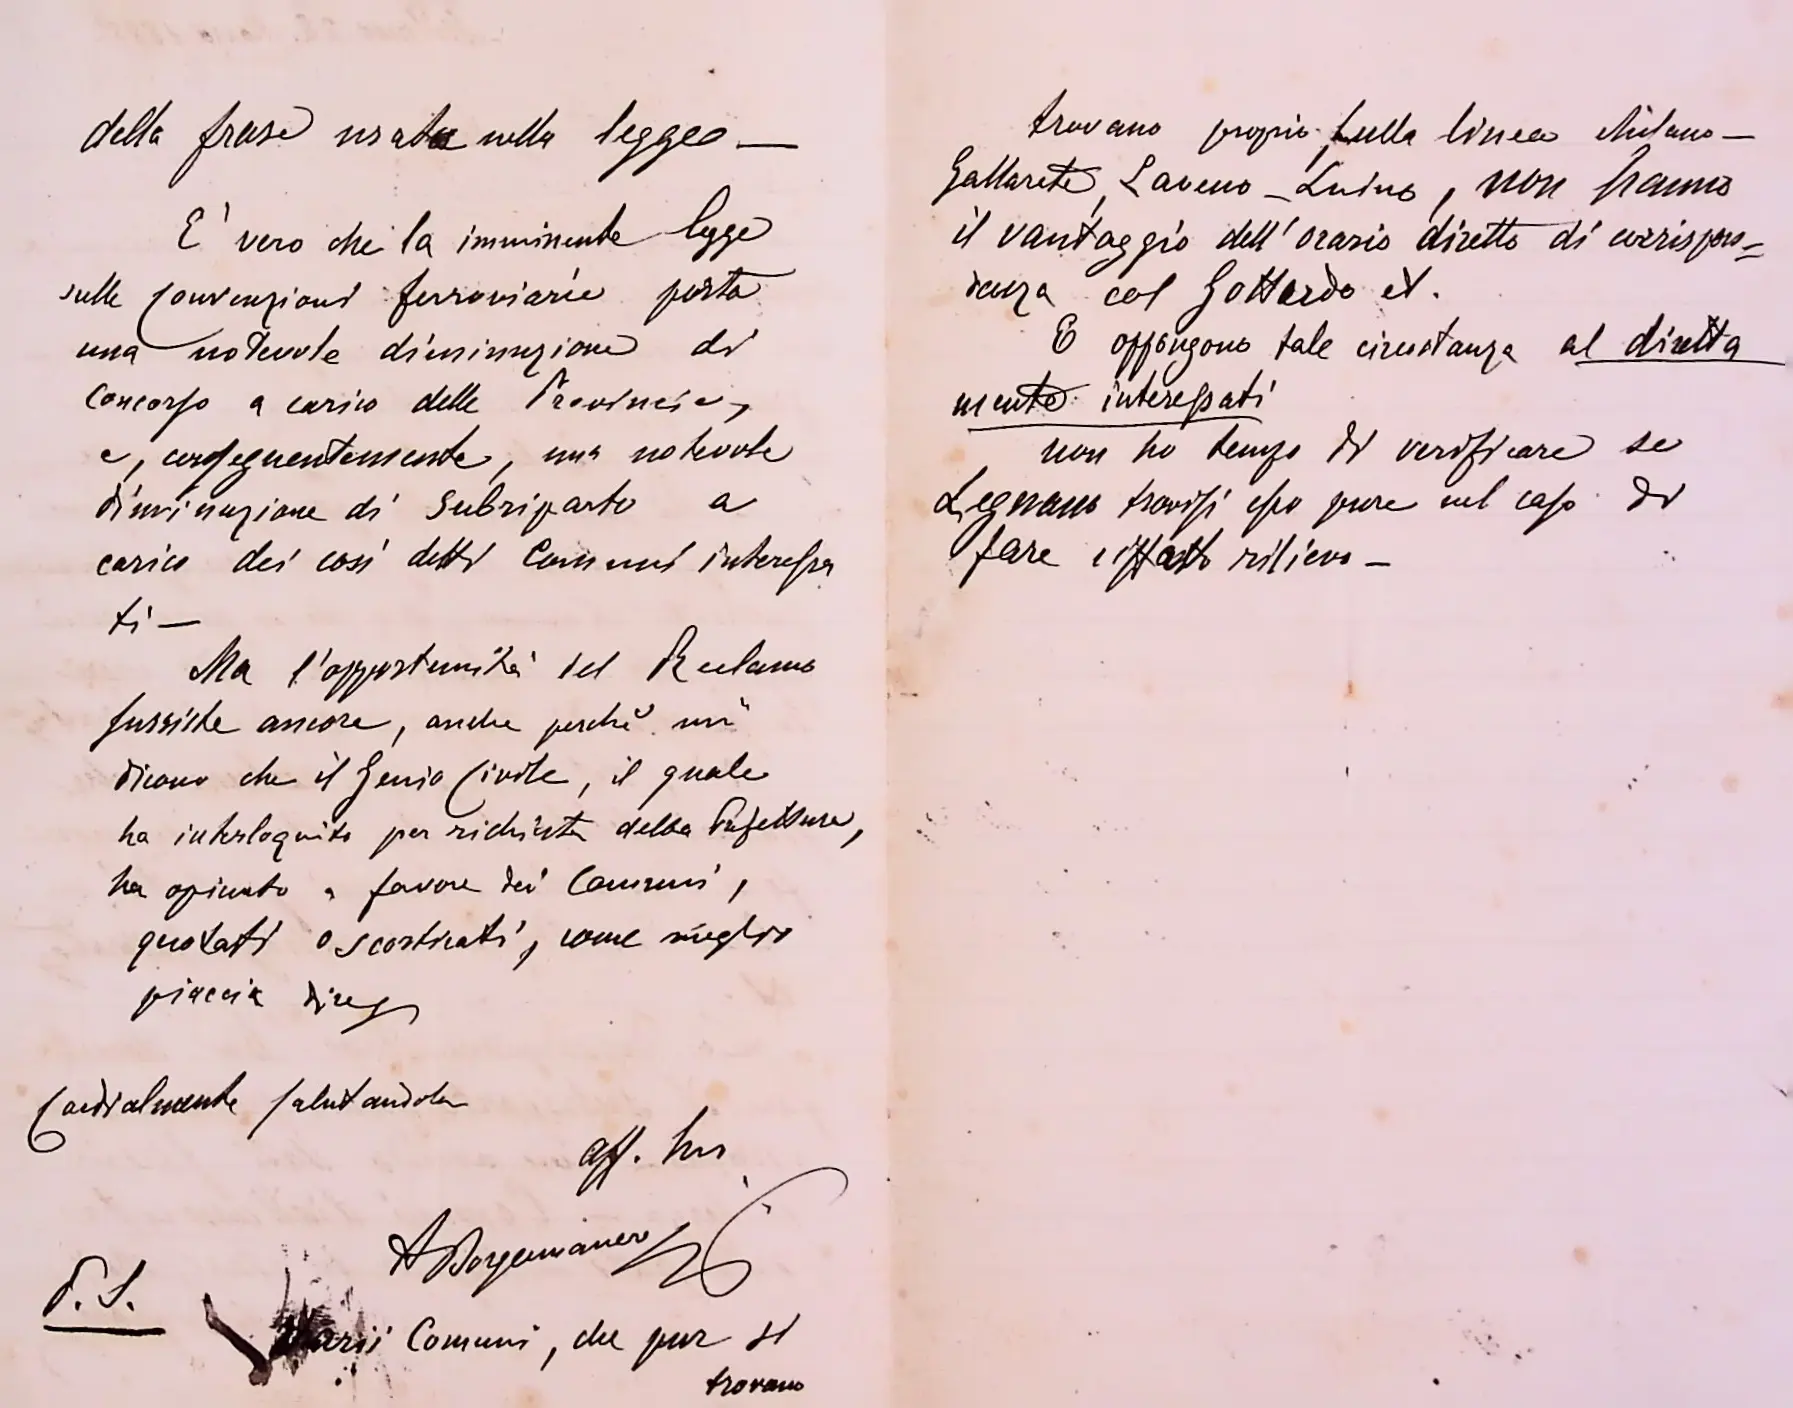 della frase usata nella legge —
E' vero che la imminente legge
sulle Convenzioni ferroviarie porta
una notevole diminuzione di
concorso a carico delle Provincie,
e, conseguentemente, una notevole
diminuzione di subriparto a
carico dei così detti Comuni interessa
ti —
Ma l'opportunità del Reclamo
sussiste ancora, anche perchè mi
dicono che il Genio Civile, il quale
ha interloquito per richiesta della Prefettura,
ha opinato a favore dei Comuni,
quotati o scorticati, come meglio
piaccia dire
Cordialmente salutandola
aff. suo
A Borgomanero
P. S.
Varii Comuni, che pur si
trovano
trovano proprio sulla linea Milano —
Gallarate, Laveno — Luino, non hanno
il vantaggio dell'orario diretto di corrispon=
denza col Gottardo et.
E oppongono tale circostanza al diretta
mente interessati
non ho tempo di verificare se
Legnano trovisi esso pure nel caso di
fare siffatto rilievo —